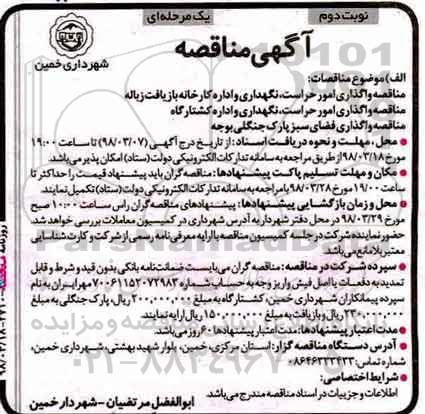 نوبت دوم
یک مرحله‌ای
آگهی مناقصه
شهرداری خمین
الف) موضوع مناقصات:
مناقصه واگذاری امور حراست، نگهداری و اداره کارخانه بازیافت زباله
مناقصه واگذاری امور حراست، نگهداری و اداره کشتارگاه
مناقصه واگذاری فضای سبز پارک جنگلی بوجه
● محل، مهلت و نحوه دریافت اسناد: از تاریخ درج آگهی (۹۸/۰۳/۰۷) تا ساعت ۱۹:۰۰
مورخ ۹۸/۰۳/۱۸ از طریق مراجعه به سامانه تدارکات الکترونیکی دولت (ستاد) امکان پذیر می‌باشد.
● مکان و مهلت تسلیم پاکت پیشنهادها: مناقصه گران باید پیشنهاد قیمت را حداکثر تا
ساعت ۱۹:۰۰ مورخ ۹۸/۰۳/۲۸ با مراجعه به سامانه تدارکات الکترونیکی دولت (ستاد) تکمیل نمایند
● محل و زمان بازگشایی پیشنهادها: پیشنهادهای مناقصه گران راس ساعت ۱۰:۰۰ صبح
مورخ ۹۸/۰۳/۲۹ در محل دفتر شهردار به آدرس شهرداری در کمیسیون معاملات بررسی خواهد شد.
حضور نماینده شرکت در جلسه کمیسیون مناقصه با ارایه معرفی نامه رسمی از شرکت و کارت شناسایی
معتبر بلامانع می‌باشد
● سپرده شرکت در مناقصه: مناقصه گران می‌بایست ضمانت‌نامه بانکی بدون قید و شرط و قابل
تمدید به دفعات یا اصل فیش واریز وجه به حساب شماره ۷۰۰۶۱۱۵۲۰۷۲۹۸۳ مهر ایران به نام
سپرده پیمانکاران شهرداری خمین، کشتارگاه به مبلغ ۲۰۰,۰۰۰,۰۰۰ ریال، پارک جنگلی به مبلغ
۲۳۰,۰۰۰,۰۰۰ ریال و بازیافت به مبلغ ۱۵۰,۰۰۰,۰۰۰ ریال ارایه نمایند.
● مدت اعتبار پیشنهادها: مدت اعتبار پیشنهادها ۶۰ روز می‌باشد.
● آدرس دستگاه مناقصه گزار: استان مرکزی، خمین، بلوار شهید بهشتی، شهرداری خمین،
شماره تماس: ۰۸۶۴۶۳۳۳۴۳۳
● شرایط اختصاصی:
اطلاعات و جزییات در اسناد مناقصه مندرج می‌باشد.
ابوالفضل مرتضیان - شهردار خمین